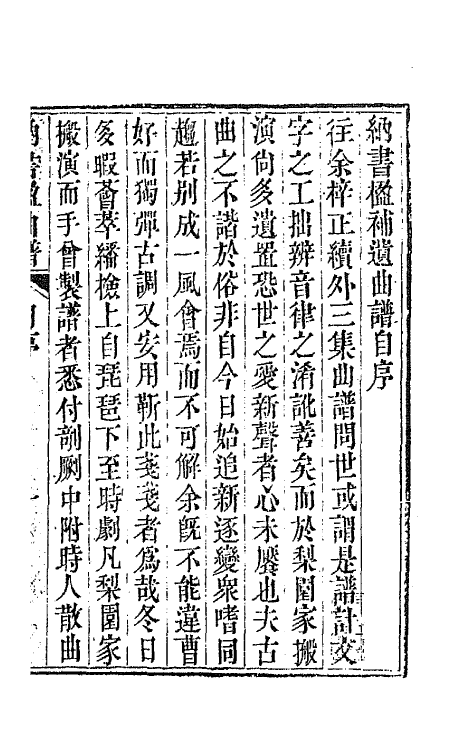 納書楹補遺曲譜自序
往余梓正續外三集曲譜問世或謂是譜計文
字之工拙辨音律之淆訛善矣而於梨園家搬
演尙多遺置恐世之愛新聲者心未饜也夫古
曲之不諧於俗非自今日始追新逐變衆嗜同
趨若别成一風會焉而不可解余旣不能違曹
好而獨彈古調又安用靳此戔戔者爲哉冬日
多暇薈萃繙檢上自琵琶下至時劇凡梨園家
搬演而手曾製譜者悉付剞劂中附時人散曲
納書楹曲譜 自序